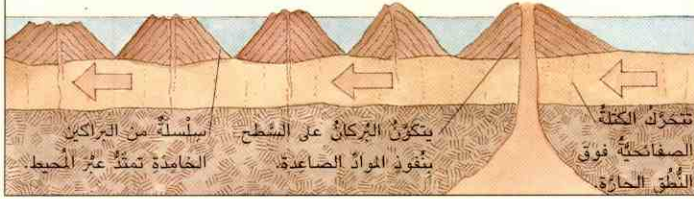 تتحرَّكُ الكتلةُ
الصفائحيَّةُ فوقَ
النُّطُقِ الحارَّة.
يتكوَّنُ البُركانُ على السَّطحِ
بنُفوذِ الموادِّ الصاعدة.
سِلْسلةٌ من البَراكينِ
الخامِدَةِ تمتَدُّ عبْرَ المُحيط.